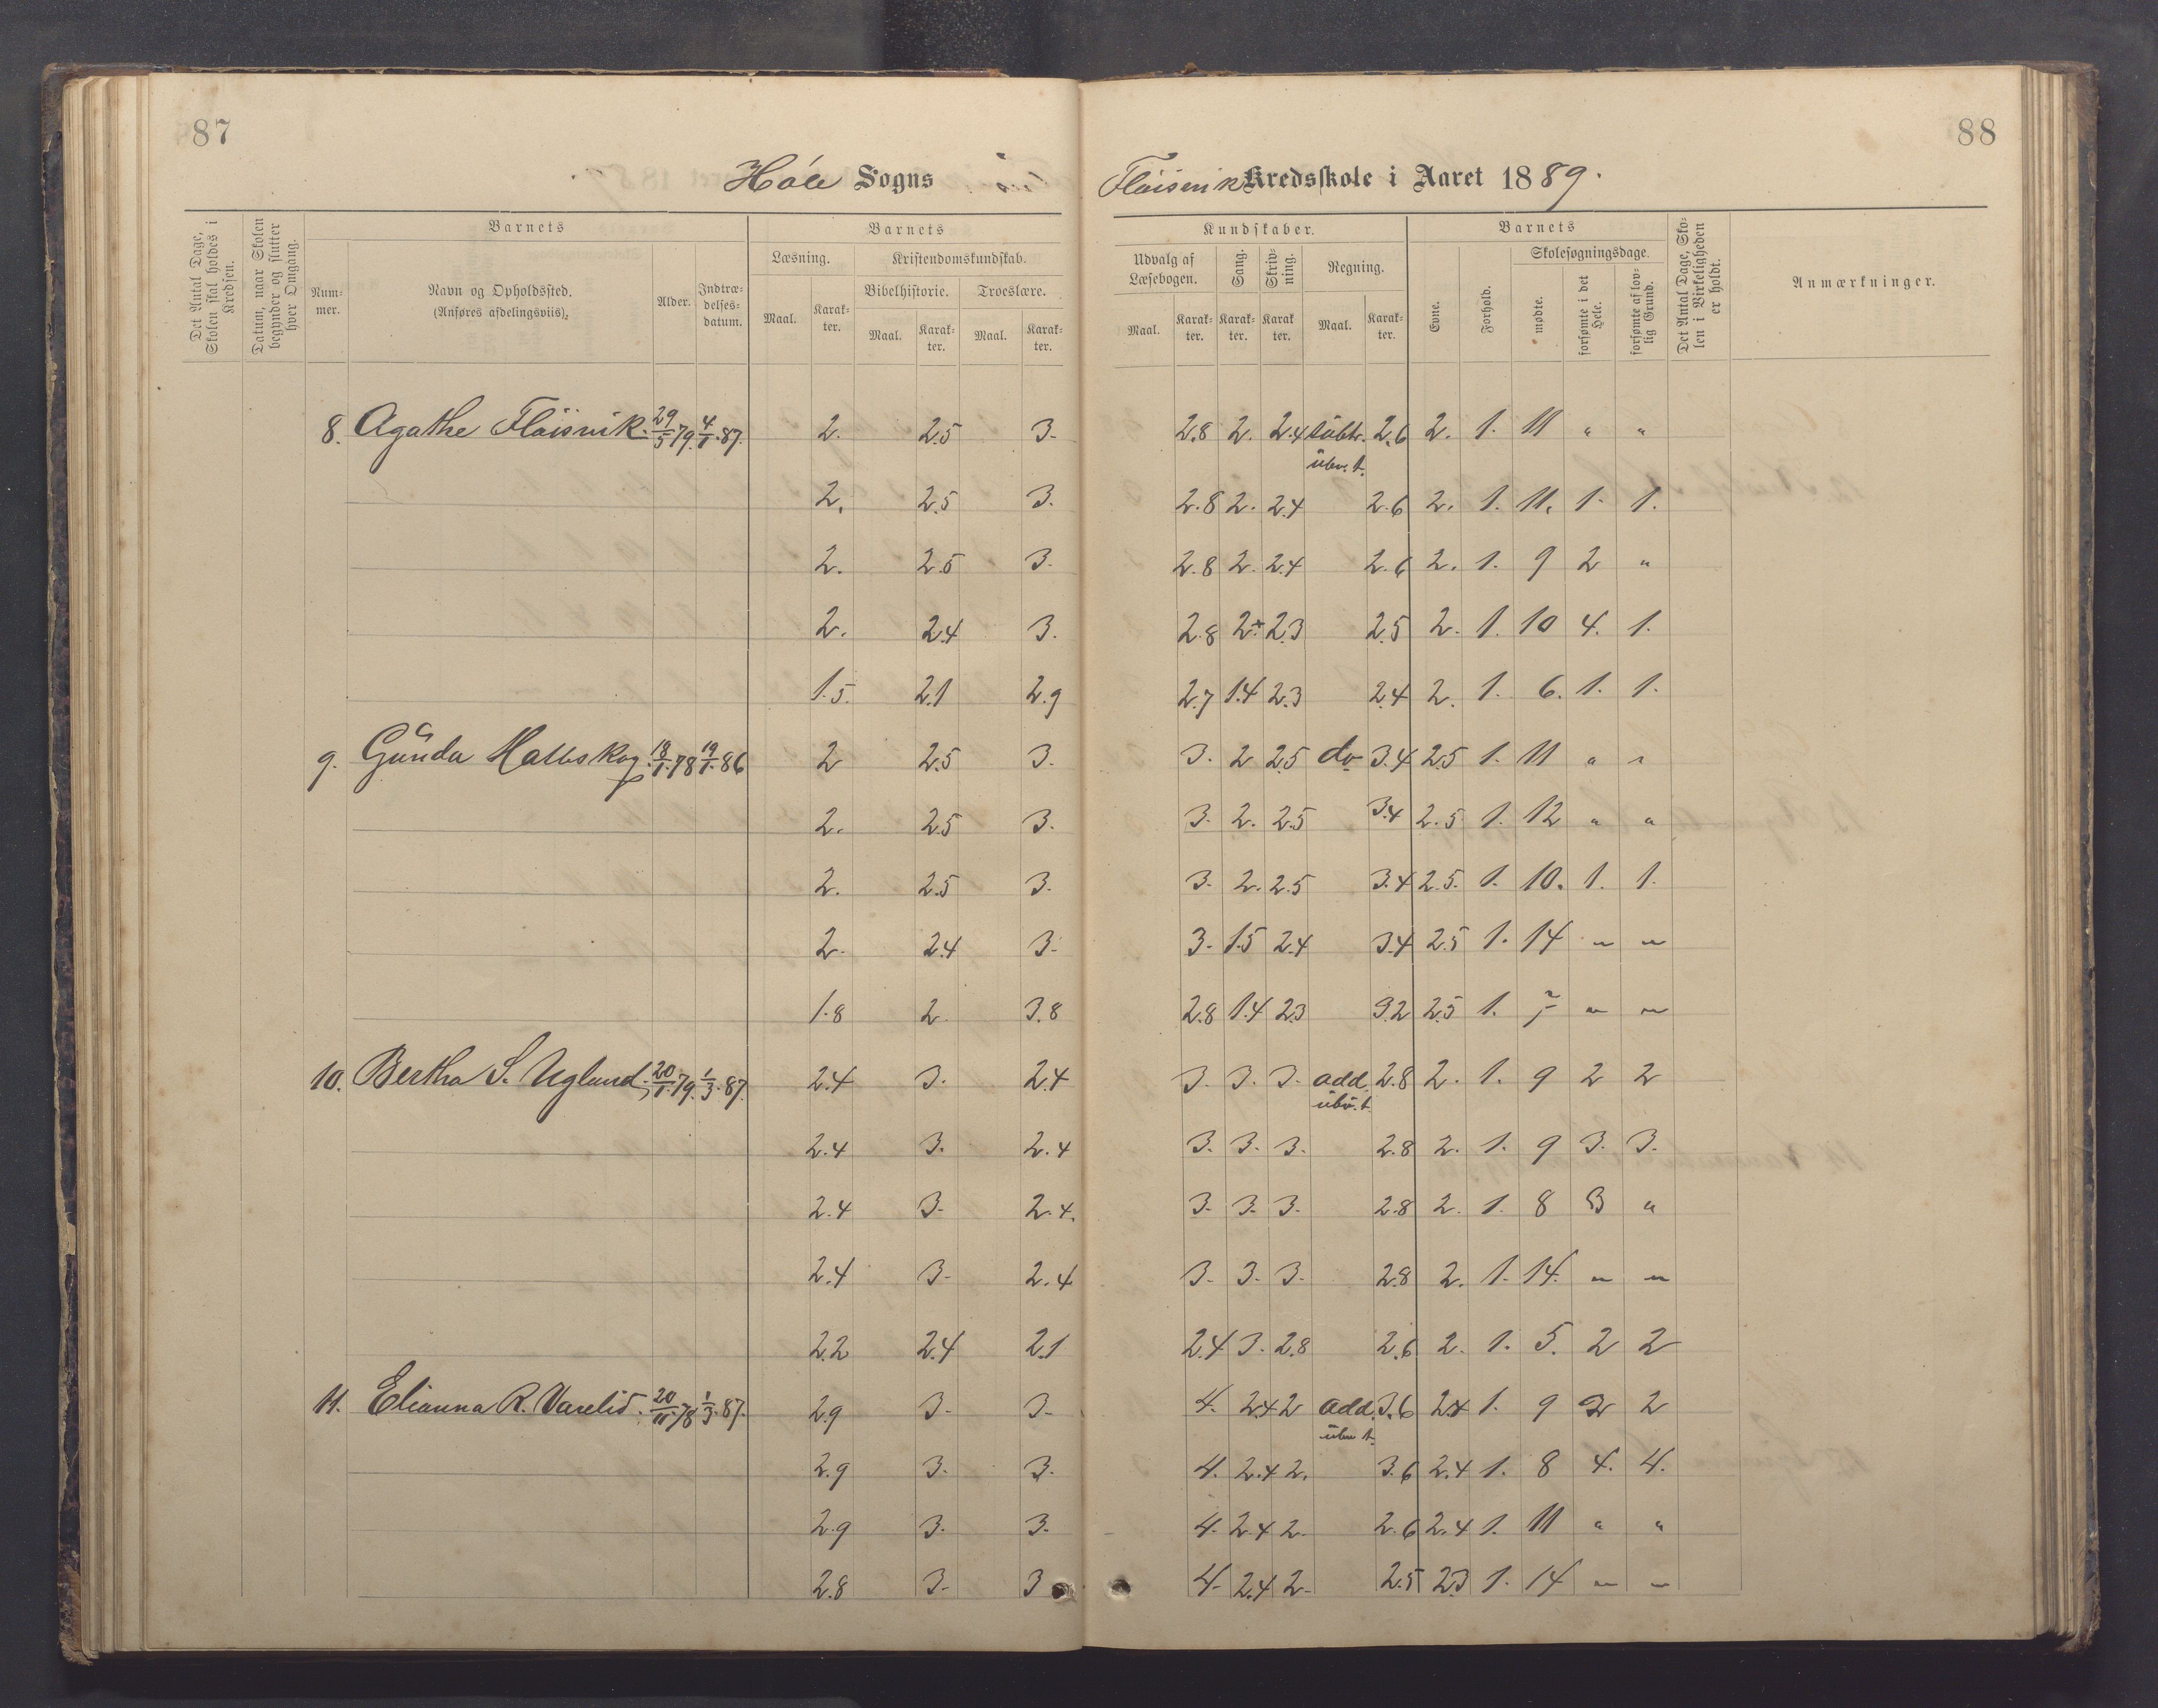 87
88
Høle Sogns
Fløisvik Kredsskole i Aaret 1889.
Det Antal Dage, Skolen skal holdes i Kredsen.
Datum, naar Skolen begynder og slutter hver Omgang.
Barnets
Num-
mer.
Navn og Opholdssted.
(Anføres afdelingsviis).
Alder.
Indtræ-
delses-
datum.
Barnets
Læsning.
Maal.
Karak-
ter.
Kristendomskundskab.
Bibelhistorie.
Maal.
Karak-
ter.
Troeslære.
Maal.
Karak-
ter.
Kundskaber.
Udvalg af
Læsebogen.
Maal.
Karak-
ter.
Sang.
Karak-
ter.
Skriv-
ning.
Karak
ter.
Regning.
Maal.
Karak-
ter.
Barnets
Evne.
Forhold.
Skolesøgningsdage.
mødte.
forsømte i det Hele.
forsømte af lov-
lig Grund.
Det Antal Dage, Sko-
len i Virkeligheden
er holdt.
Anmærkninger.
8. Agathe Fløisvik. 29/5.79. 4/1.87. 2. 2.5 3. 2.8 2. 2.4 subtr. 2.6 2. 1. 11 " "
2. 2.5 3. 2.8 2. 2.4 2.6 2. 1. 11. 1. 1.
2. 2.5 3. 2.8 2. 2.4 2.6 2. 1. 9 2 "
2. 2.4 3. 2.8 2.+ 2.3 2.5 2. 1. 10 4. 1.
1.5. 2.1 2.9 2.7 1.4 2.3 2.4 2. 1. 6. 1. 1.
9. Gunda Hatleskog. 18/1.78 19/1.86 2 2.5 3. 3. 2 2.5 do 3.4 2.5 1. 11 " "
2. 2.5 3. 3. 2. 2.5 3.4 2.5 1. 12 " "
2. 2.5 3. 3. 2. 2.5 3.4 2.5. 1. 10. 1. 1.
2. 2.4 3. 3. 1.5 2.4 3.4 2.5 1. 14 " "
1.8 2. 3.8 2.8 1.4 2.3 3.2 2.5 1. 7 " "
10. Bertha S. Uglund. 20/1.79. 1/3.87. 2.4 3. 2.4 3. 3. 3. add. 2.8 2. 1. 9 2 2
2.4 3. 2.4 3. 3. 3. 2.8 2. 1. 9 3. 3.
2.4 3. 2.4. 3. 3. 3. 2.8 2. 1. 8 3 "
2.4 3. 2.4 3. 3. 3. 2.8 2. 1. 14. " "
2.2 2.4 2.1 2.4 3. 2.8 2.6 2. 1. 5. 2 2
11. Elianna R. Varelid. 20/11.78 1/3.87. 2.9 3. 3. 4. 2.4 2 add. 3.6 2.4 1. 9 2 2
2.9 3. 3. 4. 2.4 2. 3.6 2.4 1. 8 4. 4.
2.9 3. 3. 4. 2.4 2. 2.6 2.4 1. 11 " "
2.8 3. 3 4. 2.4 2. 2.5 2.3 1. 14 " "